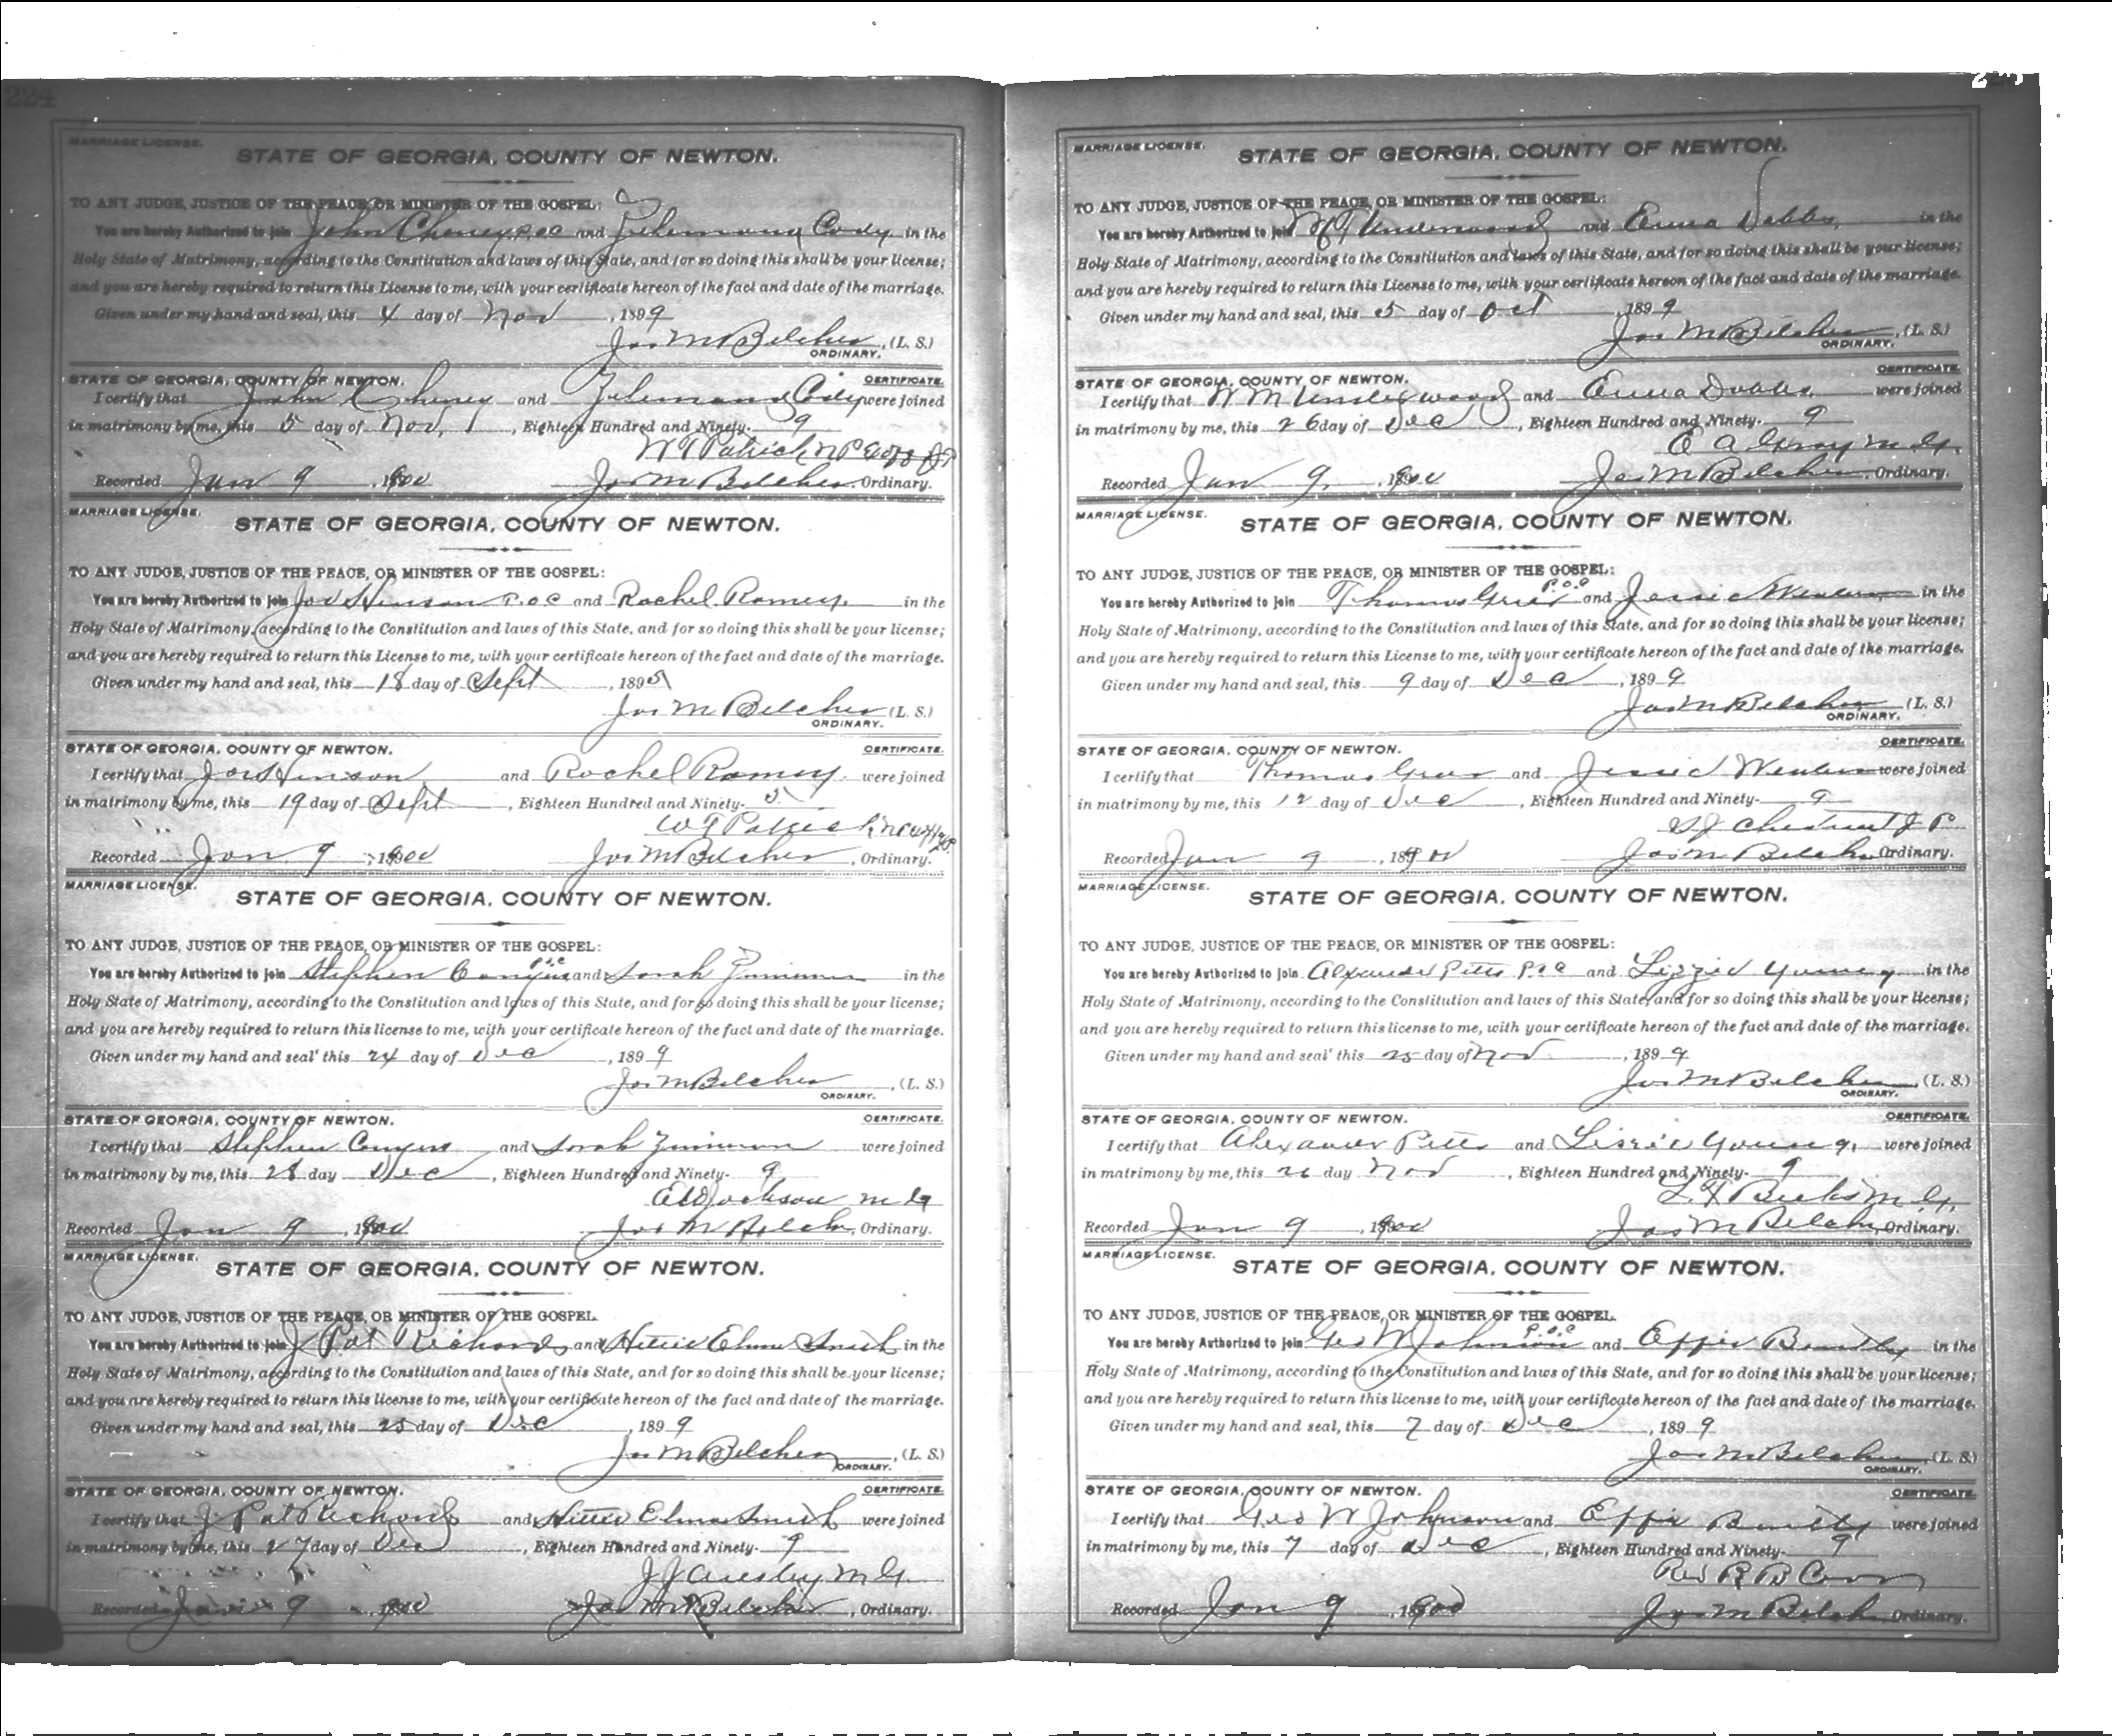 224
MARRIAGE LICENSE.
STATE OF GEORGIA, COUNTY OF NEWTON.
TO ANY JUDGE, JUSTICE OF THE PEACE, OR MINISTER OF THE GOSPEL:
You are hereby Authorized to join John Cheney P.O.C and Cody in the
Holy State of Matrimony, according to the Constitution and laws of this State, and for so doing this shall be your license;
and you are hereby required to return this License to me, with your certificate hereon of the fact and date of the marriage.
Given under my hand and seal, this 4 day of Nov, 1899
Jos M Belcher, (L. S.)
ORDINARY.
STATE OF GEORGIA, COUNTY OF NEWTON. CERTIFICATE.
I certify that John Cheney and Cody were joined
in matrimony by me, this 5 day of Nov, Eighteen Hundred and Ninety-9
W T Patrick N P
Recorded Jan 9, 1900 Jos M Belcher Ordinary.
MARRIAGE LICENSE.
STATE OF GEORGIA, COUNTY OF NEWTON.
TO ANY JUDGE, JUSTICE OF THE PEACE, OR MINISTER OF THE GOSPEL:
You are hereby Authorized to join Joe Hinson P.O.C and Rachel Ramey in the
Holy State of Matrimony, according to the Constitution and laws of this State, and for so doing this shall be your license;
and you are hereby required to return this License to me, with your certificate hereon of the fact and date of the marriage.
Given under my hand and seal, this 18 day of Sept, 1895
Jos M Belcher (L. S.)
ORDINARY.
STATE OF GEORGIA, COUNTY OF NEWTON. CERTIFICATE.
I certify that Joe Hinson and Rachel Ramey were joined
in matrimony by me, this 19 day of Sept, Eighteen Hundred and Ninety-5
W T Patrick
Recorded Jan 9, 1900 Jos M Belcher, Ordinary.
MARRIAGE LICENSE.
STATE OF GEORGIA, COUNTY OF NEWTON.
TO ANY JUDGE, JUSTICE OF THE PEACE, OR MINISTER OF THE GOSPEL:
You are hereby Authorized to join Stephen Conyers P.O.C and Sarah Zimmerman in the
Holy State of Matrimony, according to the Constitution and laws of this State, and for so doing this shall be your license;
and you are hereby required to return this license to me, with your certificate hereon of the fact and date of the marriage.
Given under my hand and seal' this 24 day of Dec, 1899
Jos M Belcher, (L. S.)
ORDINARY.
STATE OF GEORGIA, COUNTY OF NEWTON. CERTIFICATE.
I certify that Stephen Conyers and Sarah were joined
in matrimony by me, this 28 day Dec, Eighteen Hundred and Ninety-9
Jackson M G
Recorded Jan 9, 1900 Jos M Belcher, Ordinary.
MARRIAGE LICENSE.
STATE OF GEORGIA, COUNTY OF NEWTON.
TO ANY JUDGE, JUSTICE OF THE PEACE, OR MINISTER OF THE GOSPEL.
You are hereby Authorized to join J Pat Richards and Hettie Elmer Smith in the
Holy State of Matrimony, according to the Constitution and laws of this State, and for so doing this shall be your license;
and you are hereby required to return this license to me, with your certificate hereon of the fact and date of the marriage.
Given under my hand and seal, this 25 day of Dec, 1899
Jos M Belcher, (L. S.)
ORDINARY.
STATE OF GEORGIA, COUNTY OF NEWTON. CERTIFICATE.
I certify that J Pat Richards and Hettie Elmer Smith were joined
in matrimony by me, this 27 day of Dec, Eighteen Hundred and Ninety-9
J J Ansley M G
Recorded Jan 9, 1900 Jos M Belcher, Ordinary.
MARRIAGE LICENSE.
STATE OF GEORGIA, COUNTY OF NEWTON.
TO ANY JUDGE, JUSTICE OF THE PEACE, OR MINISTER OF THE GOSPEL:
You are hereby Authorized to join Underwood and Emma Dobbs, in the
Holy State of Matrimony, according to the Constitution and laws of this State, and for so doing this shall be your license;
and you are hereby required to return this License to me, with your certificate hereon of the fact and date of the marriage.
Given under my hand and seal, this 5 day of Oct, 1899
Jos M Belcher, (L. S.)
ORDINARY.
STATE OF GEORGIA, COUNTY OF NEWTON. CERTIFICATE.
I certify that W M Underwood and Emma Dobbs, were joined
in matrimony by me, this 26 day of Dec, Eighteen Hundred and Ninety-9
E A Gray M G.
Recorded Jan 9, 1900 Jos M Belcher, Ordinary.
MARRIAGE LICENSE.
STATE OF GEORGIA, COUNTY OF NEWTON.
TO ANY JUDGE, JUSTICE OF THE PEACE, OR MINISTER OF THE GOSPEL:
You are hereby Authorized to join Thomas Grier P.O.C and Jessie in the
Holy State of Matrimony, according to the Constitution and laws of this State, and for so doing this shall be your license;
and you are hereby required to return this License to me, with your certificate hereon of the fact and date of the marriage.
Given under my hand and seal, this 9 day of Dec, 1899
Jos M Belcher (L. S.)
ORDINARY.
STATE OF GEORGIA, COUNTY OF NEWTON. CERTIFICATE.
I certify that Thomas Grier and Jessie were joined
in matrimony by me, this 12 day of Dec, Eighteen Hundred and Ninety-9
S J Chestnut J P
Recorded Jan 9, 1900 Jos M Belcher Ordinary.
MARRIAGE LICENSE.
STATE OF GEORGIA, COUNTY OF NEWTON.
TO ANY JUDGE, JUSTICE OF THE PEACE, OR MINISTER OF THE GOSPEL:
You are hereby Authorized to join Alexander Pitts P.O.C and Lizzie Young in the
Holy State of Matrimony, according to the Constitution and laws of this State, and for so doing this shall be your license;
and you are hereby required to return this license to me, with your certificate hereon of the fact and date of the marriage.
Given under my hand and seal' this 25 day of Nov, 1899
Jos M Belcher, (L. S.)
ORDINARY.
STATE OF GEORGIA, COUNTY OF NEWTON. CERTIFICATE.
I certify that Alexander Pitts and Lizzie Young, were joined
in matrimony by me, this 26 day Nov, Eighteen Hundred and Ninety-9
M G.
Recorded Jan 9, 1900 Jos M Belcher, Ordinary.
MARRIAGE LICENSE.
STATE OF GEORGIA, COUNTY OF NEWTON.
TO ANY JUDGE, JUSTICE OF THE PEACE, OR MINISTER OF THE GOSPEL.
You are hereby Authorized to join Geo W Johnson P.O.C and Effie Bentley in the
Holy State of Matrimony, according to the Constitution and laws of this State, and for so doing this shall be your license;
and you are hereby required to return this license to me, with your certificate hereon of the fact and date of the marriage.
Given under my hand and seal, this 7 day of Dec, 1899
Jos M Belcher, (L. S.)
ORDINARY.
STATE OF GEORGIA, COUNTY OF NEWTON. CERTIFICATE.
I certify that Geo W Johnson and Effie Bently were joined
in matrimony by me, this 7 day of Dec, Eighteen Hundred and Ninety-9
Rev R B
Recorded Jan 9, 1900 Jos M Belcher, Ordinary.